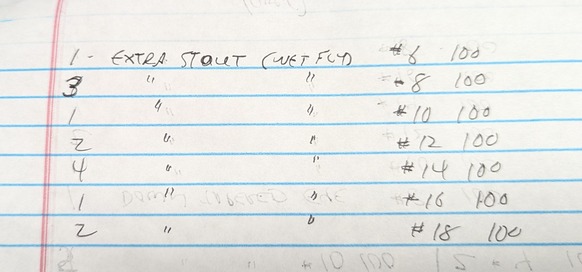 1 - EXTRA STOUT (WET FLY) #6 100
3 " " #8 100
1 " " #10 100
2 " " #12 100
4 " " #14 100
1 " " #16 100
2 " " #18 100